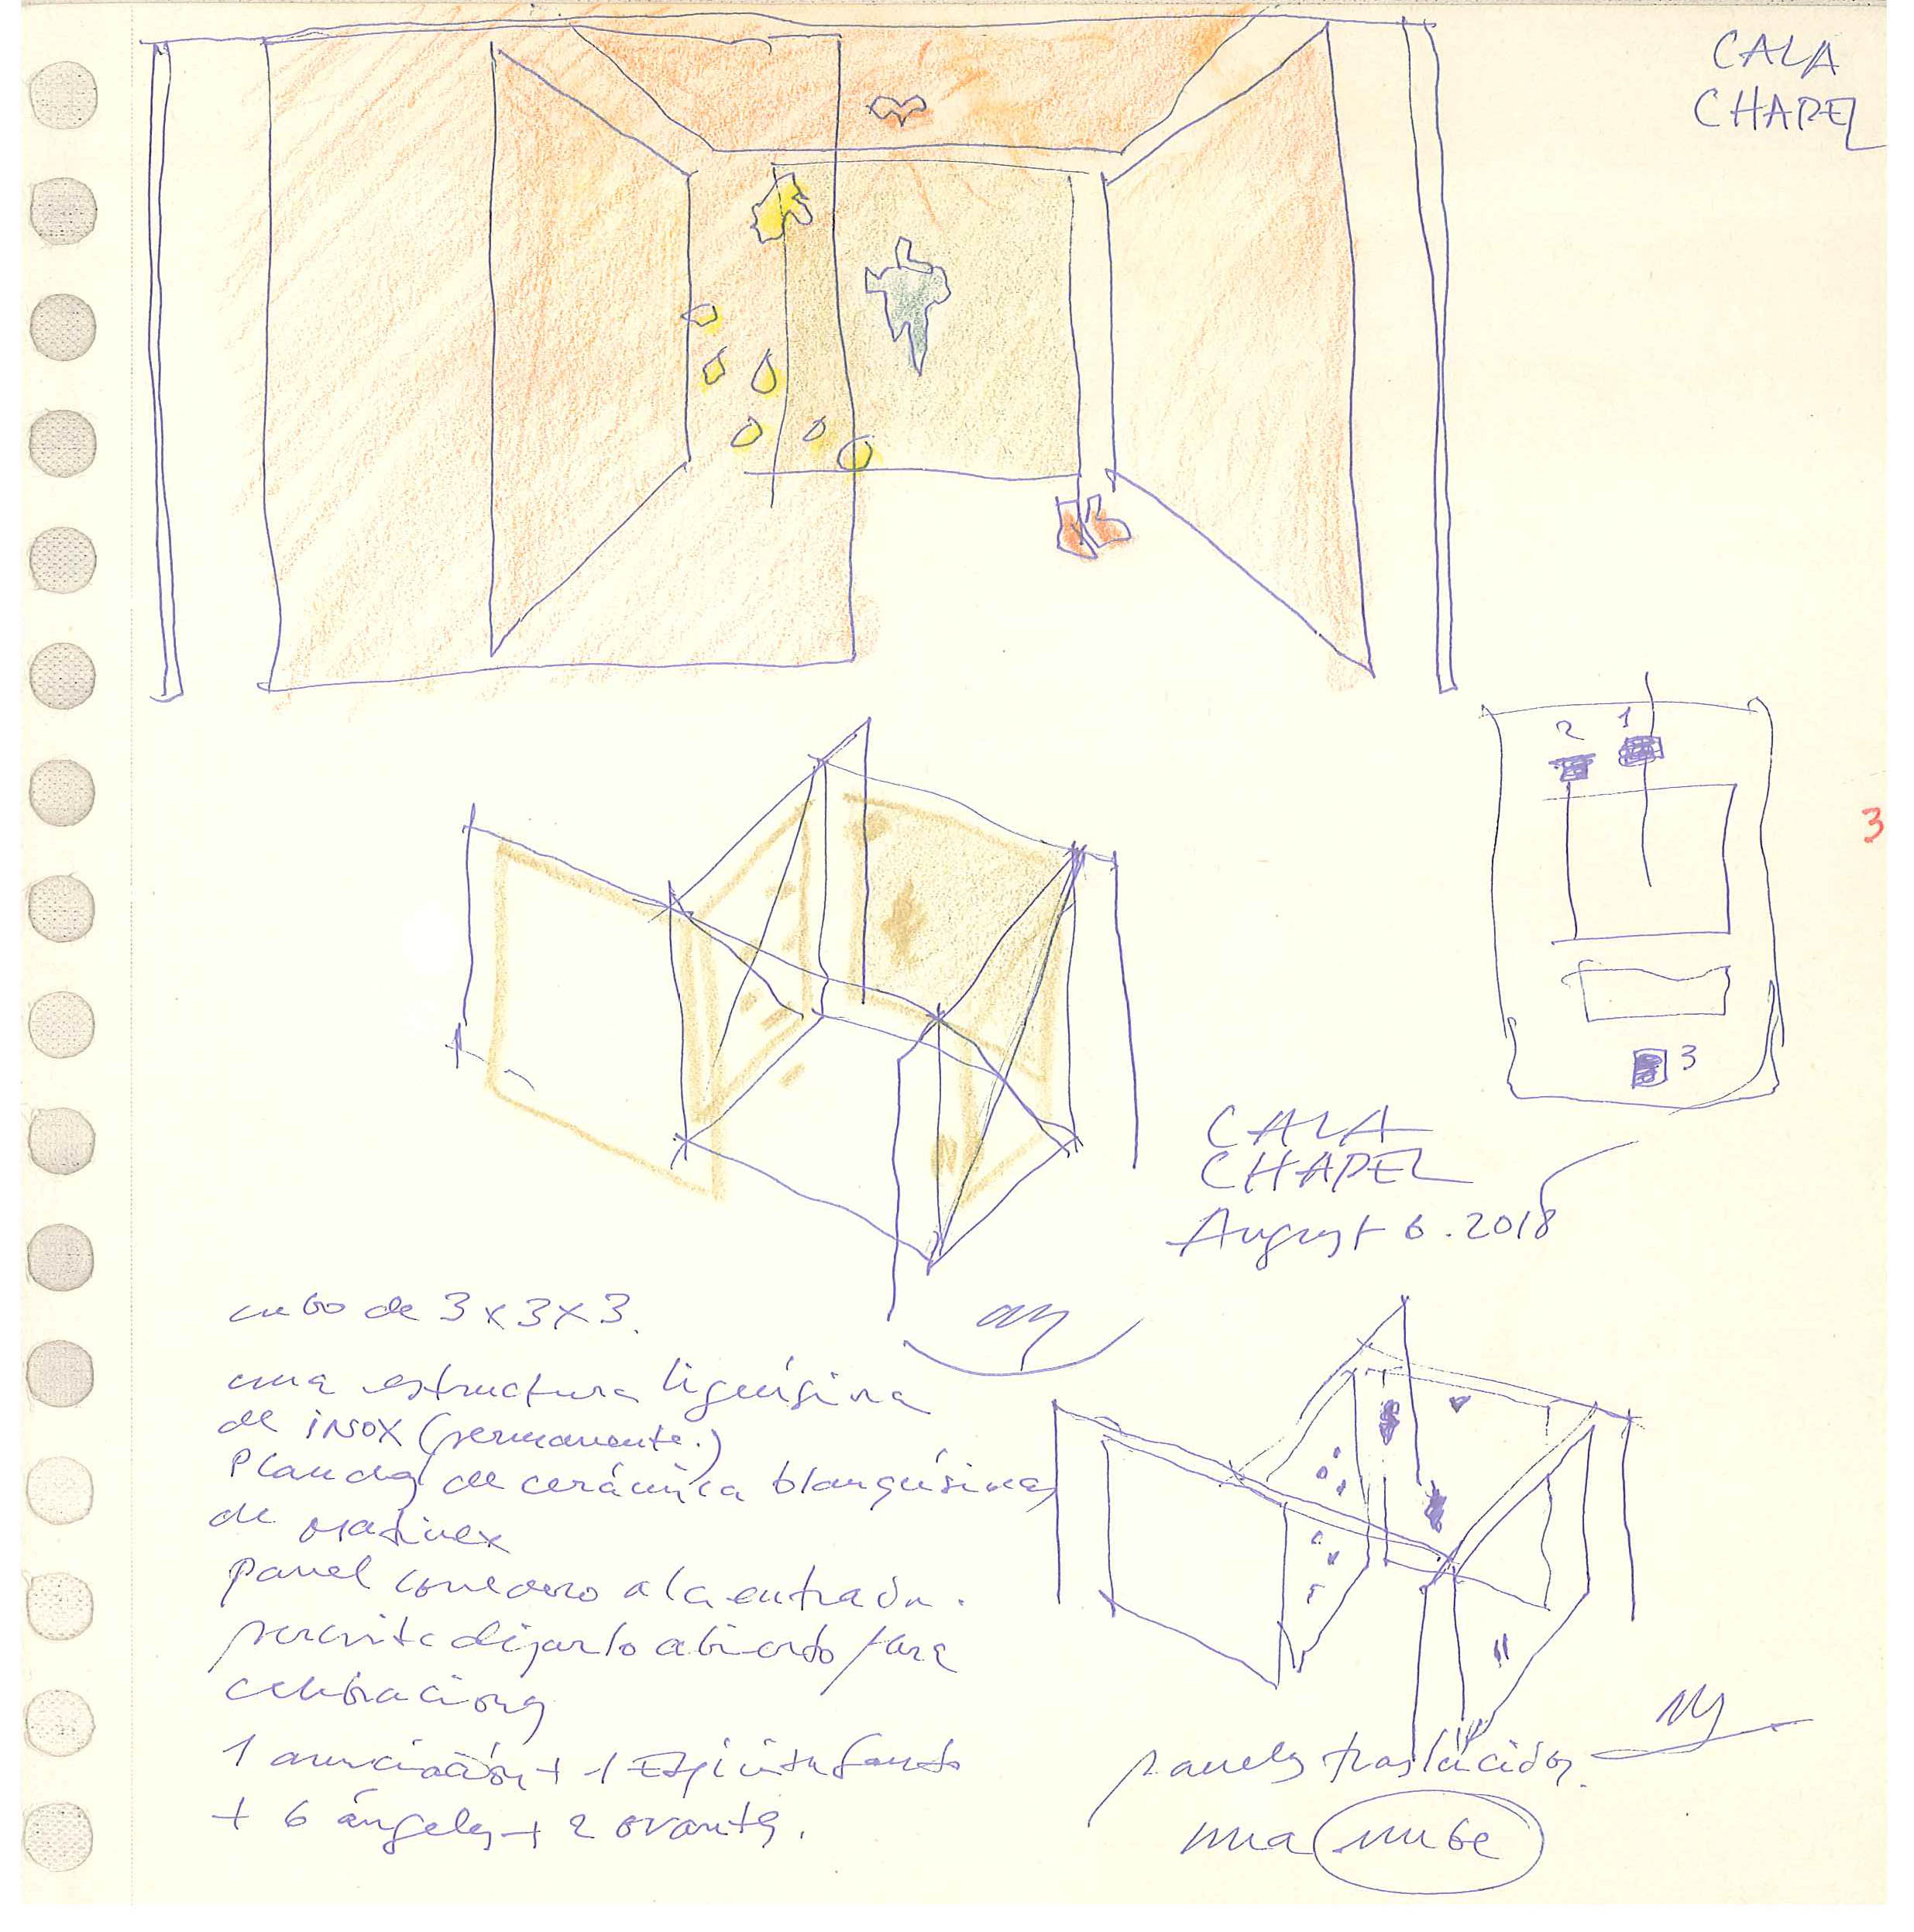 CALA
CHAPEL
2 1
3
3
CALA
CHAPEL
August 6. 2018
cubo de 3 x 3 x 3.
una estructura ligerísima
de inox (permanente.)
Planchas de cerámica blanquísima
de
panel corredero a la entrada.
permite dejarlo abierto para
celebraciones
1 anunciación + 1 Espíritu Santo
+ 6 ángeles + 2 orantes.
paneles traslúcidos.
una nube